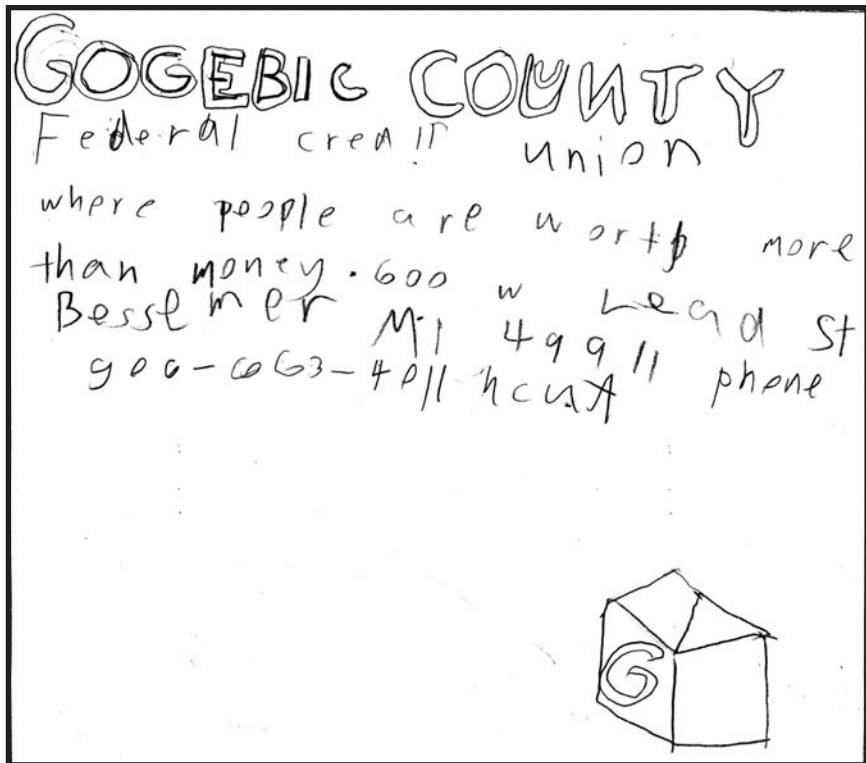 GOGEBIC COUNTY
Federal credIT union
where people are worth more
than money. 600 w Lead St
Bessemer MI 49911
906-663-4011 ncua phone
G